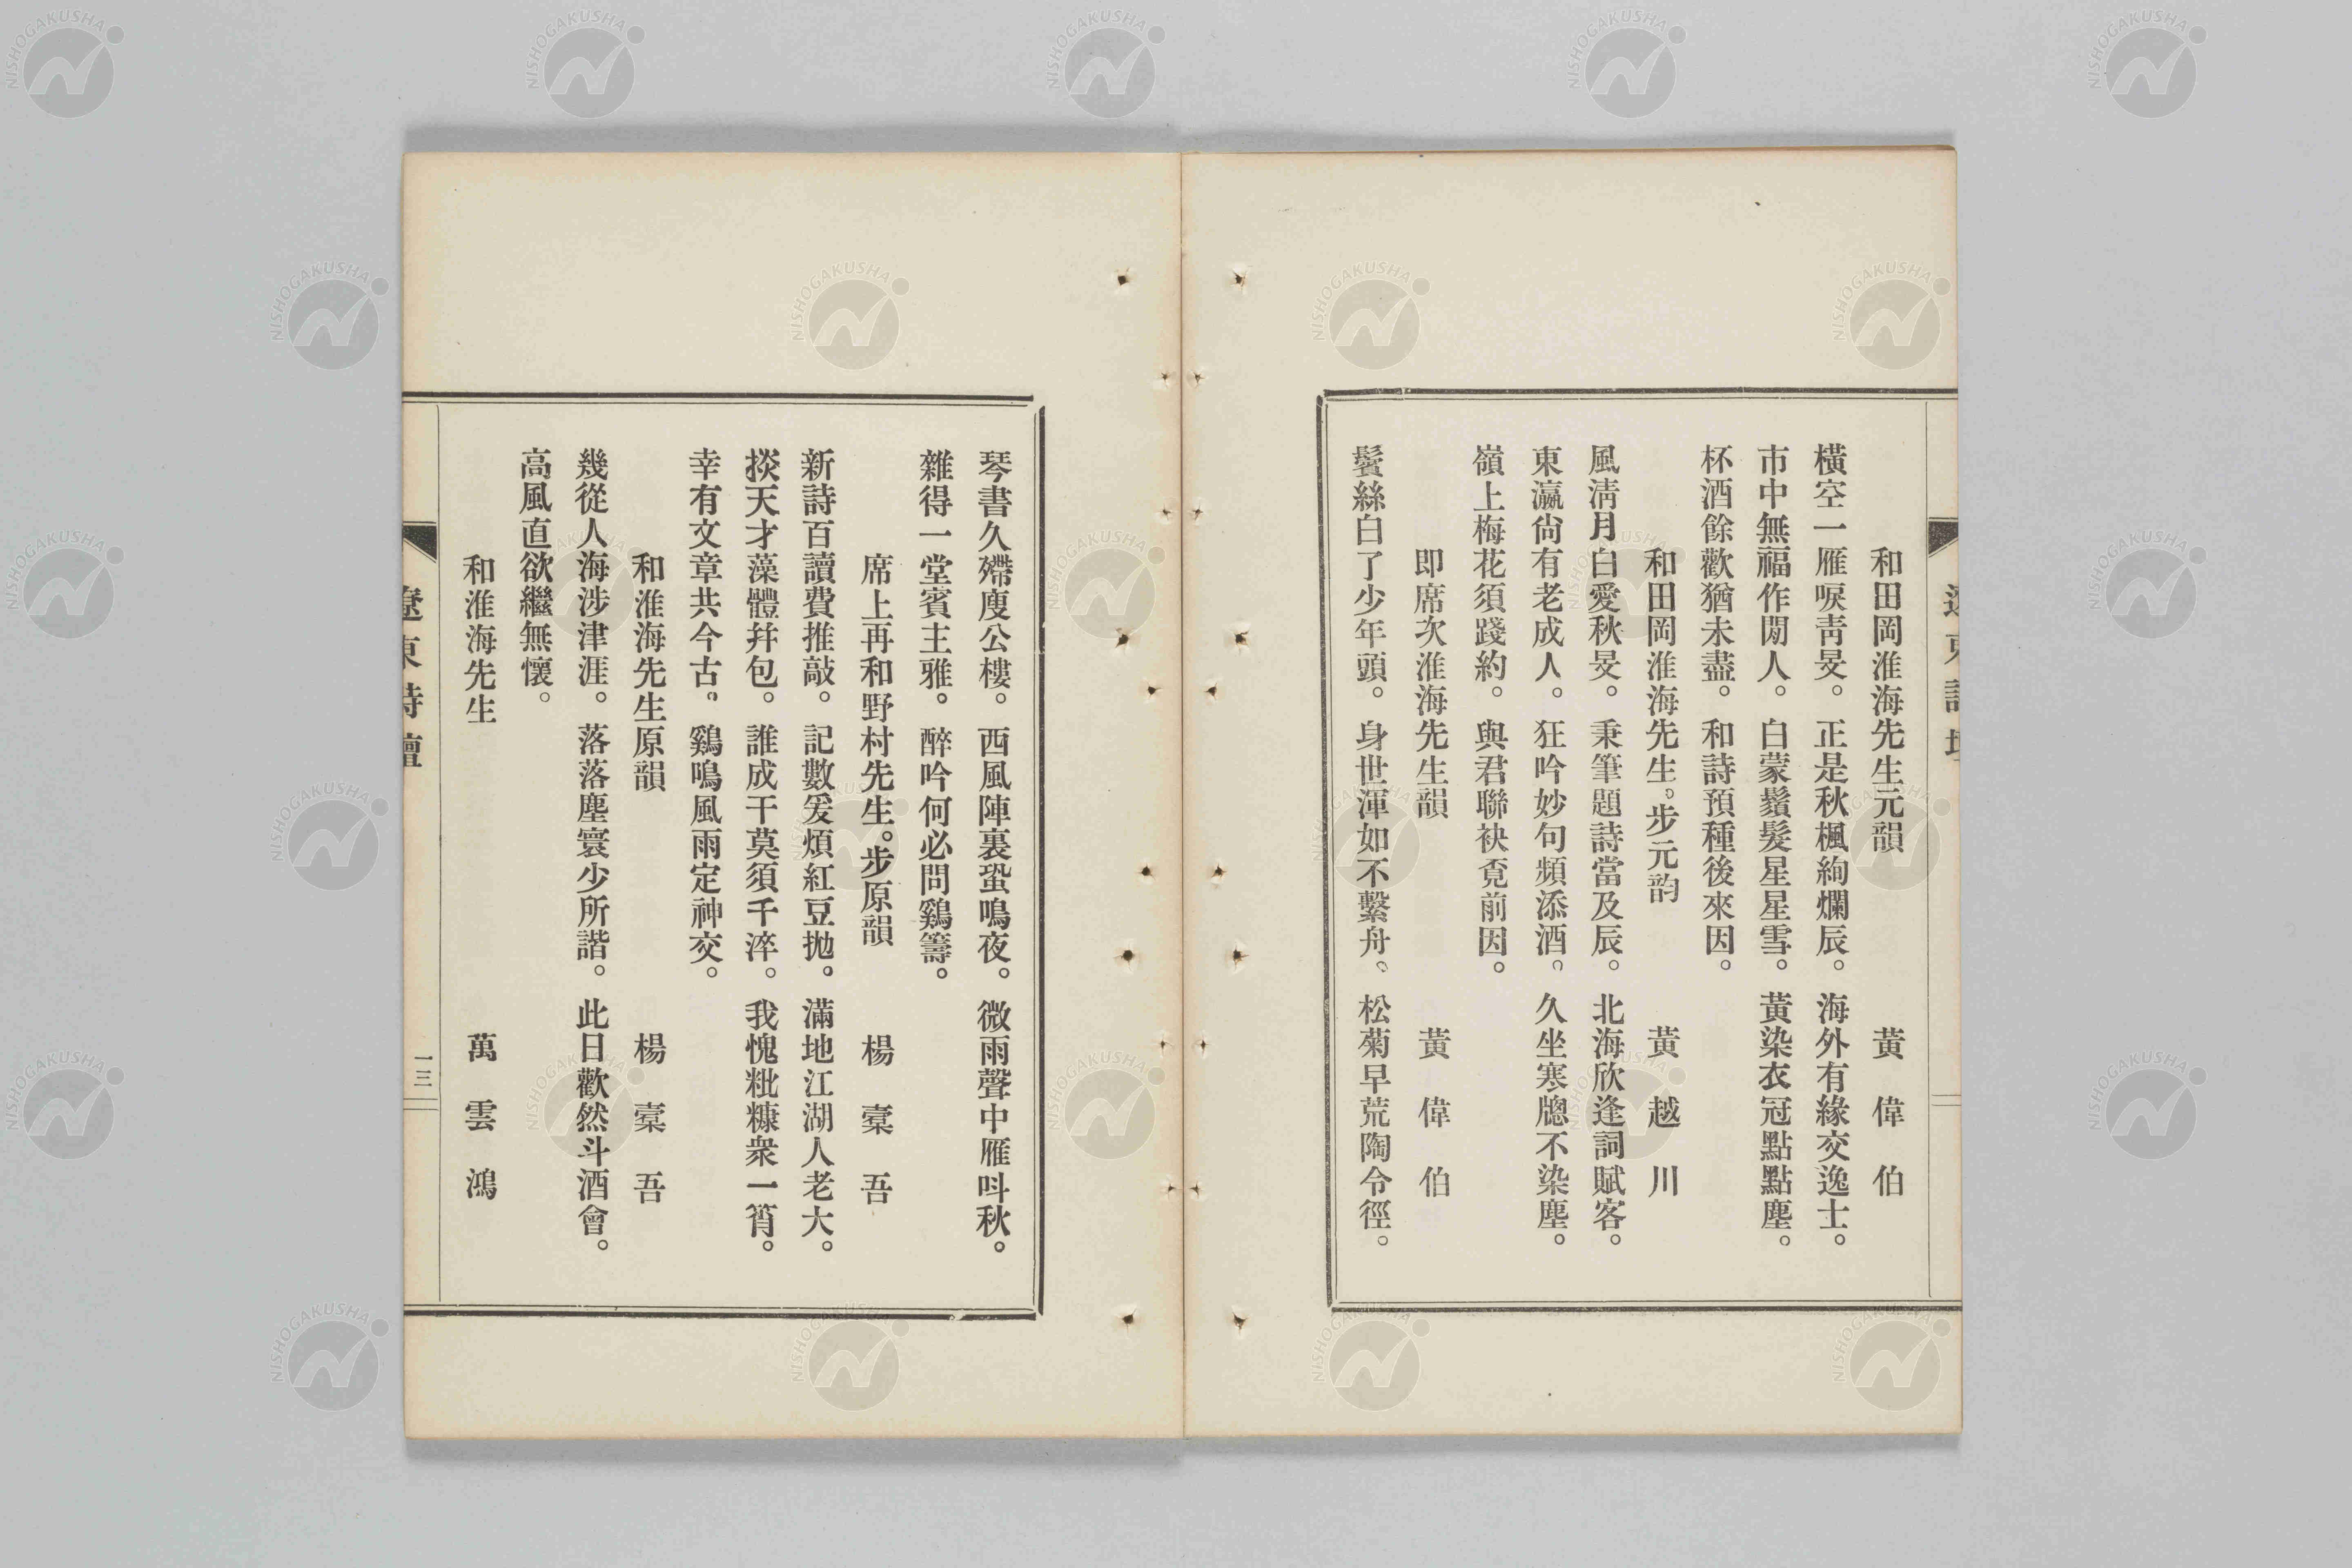 遼東詩壇
和田岡淮海先生元韻　黃偉伯
橫空一雁唳靑旻。正是秋楓絢爛辰。海外有緣交逸士。
市中無福作閒人。白蒙鬚髮星星雪。黃染衣冠點點塵。
杯酒餘歡猶未盡。和詩預種後來因。
和田岡淮海先生。步元韵　黃越川
風淸月白愛秋旻。秉筆題詩當及辰。北海欣逢詞賦客。
東瀛尙有老成人。狂吟妙句頻添酒。久坐寒牕不染塵。
嶺上梅花須踐約。與君聯袂覓前因。
即席次淮海先生韻　黃偉伯
鬢絲白了少年頭。身世渾如不繫舟。松菊早荒陶令徑。
琴書久殢庾公樓。西風陣裏蛩鳴夜。微雨聲中雁呌秋。
雜得一堂賓主雅。醉吟何必問鷄籌。
席上再和野村先生。步原韻　楊槖吾
新詩百讀費推敲。記數爰煩紅豆拋。滿地江湖人老大。
掞天才藻體幷包。誰成干莫須千淬。我愧粃糠衆一筲。
幸有文章共今古。鷄鳴風雨定神交。
和淮海先生原韻　楊槖吾
幾從人海涉津涯。落落塵寰少所諧。此日歡然斗酒會。
高風直欲繼無懷。
和淮海先生　萬雲鴻
遼東詩壇
一三
NISHOGAKUSHA